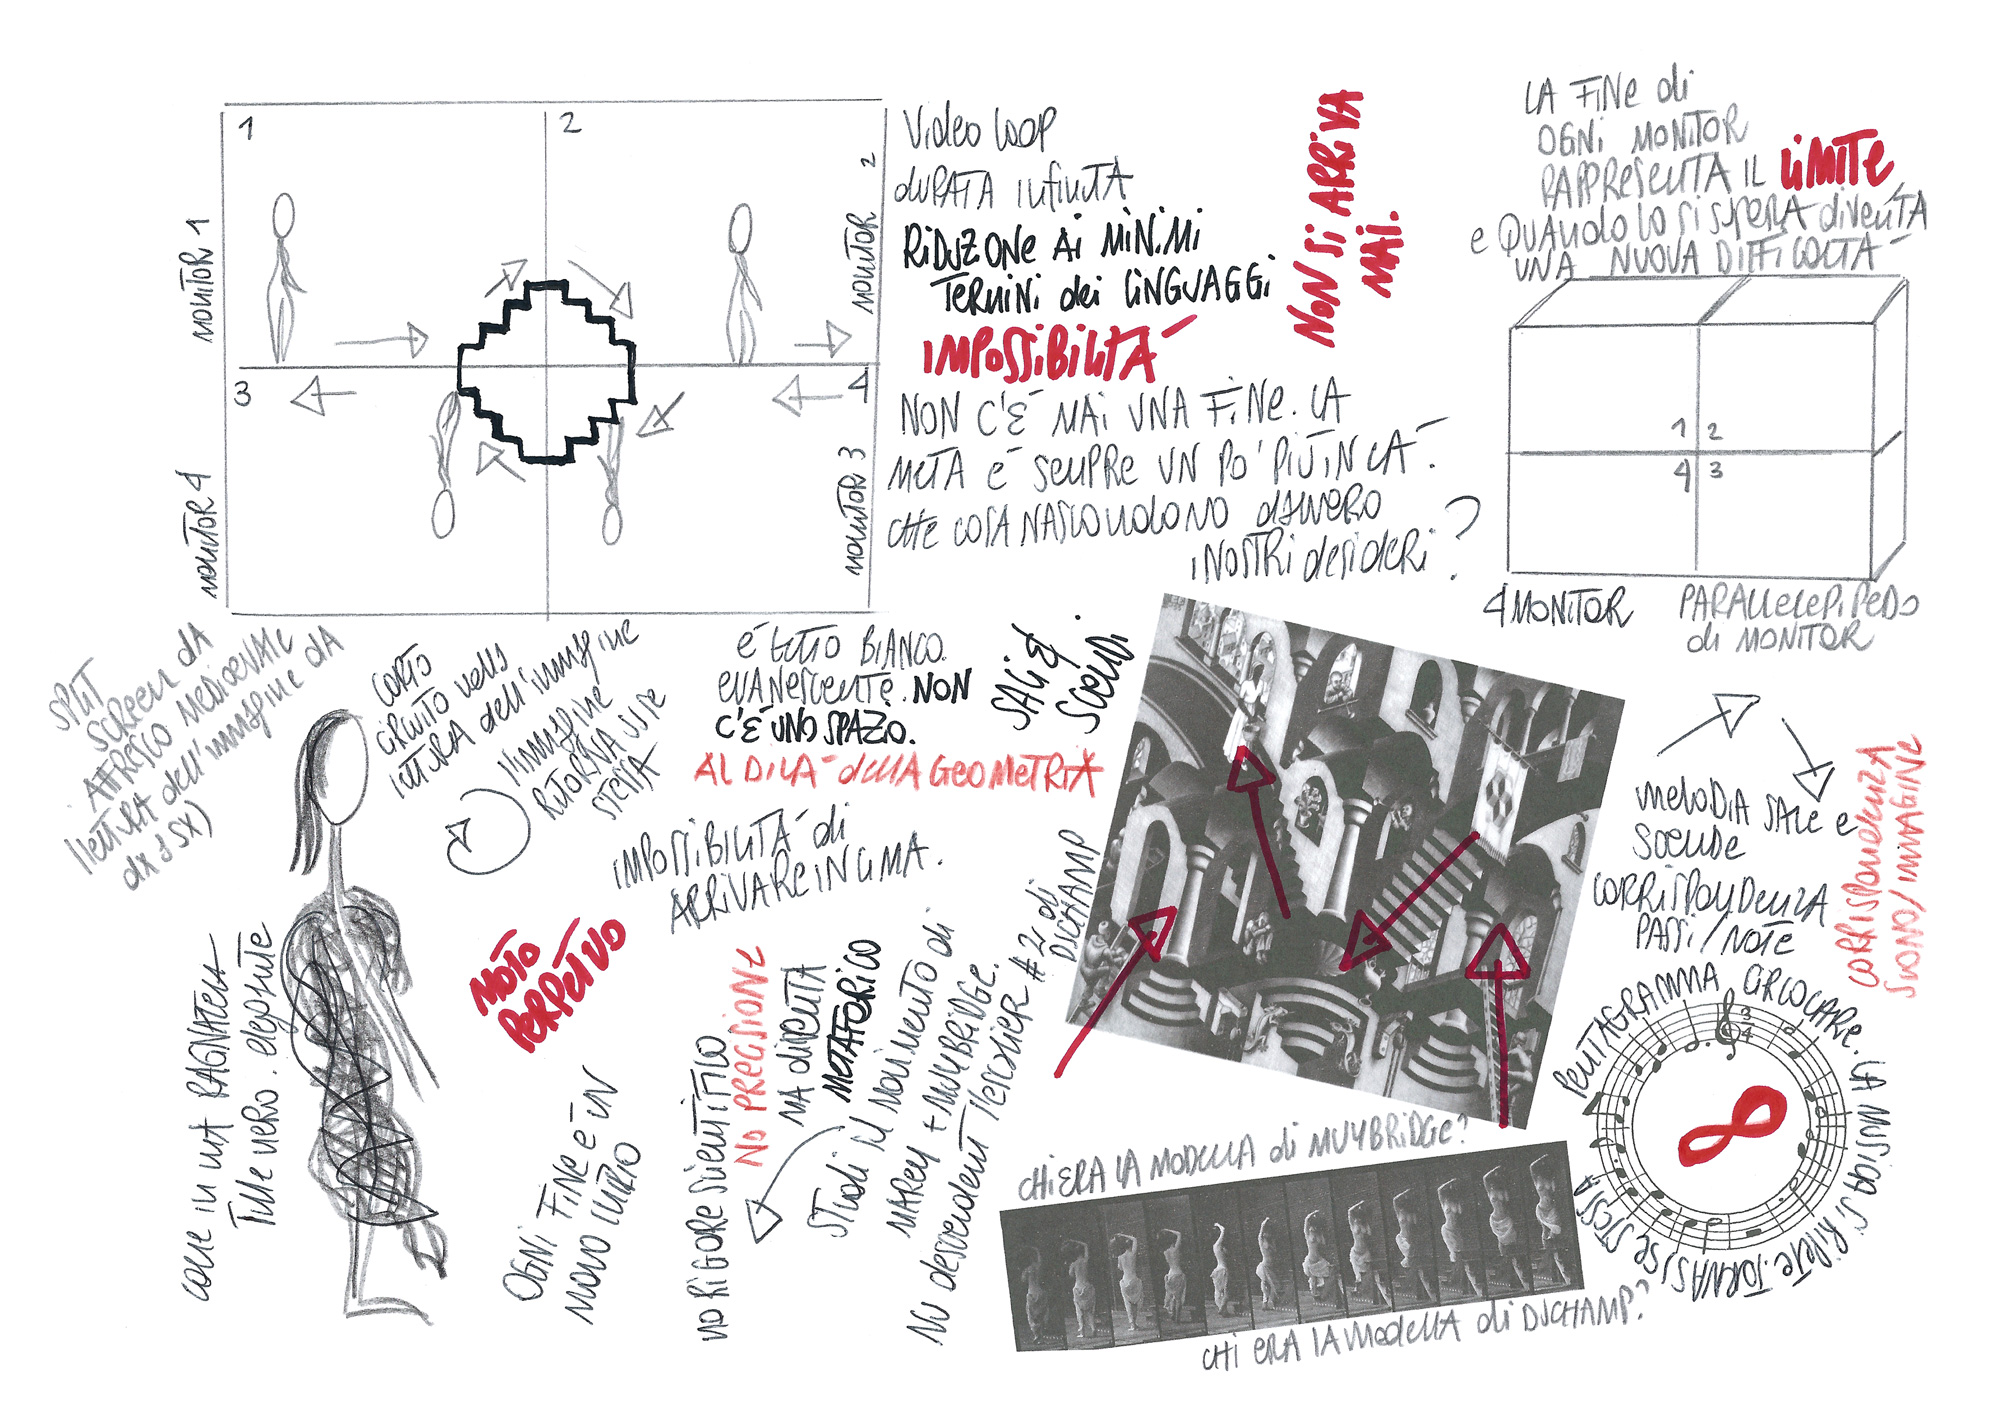 1
2
MONITOR 1
MONITOR 2
3
4
MONITOR 4
MONITOR 3
Video LOOP
DURATA INFINITA
RiDUZONE Ai MiNiMi
TERMINI dei LiNGUAGGi
IMPOSSiBiLITÀ
NON C'È MAi UNA FiNe. LA
META È SEMPRE UN PO' PIÙ IN LÀ.
CHE COSA NASCONDONO DAVVERO
I NOSTRi desideri?
NON Si ARRiVA
MAi.
LA FiNe di
OGNi MONiTOR
RAPPRESENTA IL LiMiTe
e QUANDO LO Si SUPERA diventa
UNA NUOVA DiFFiCOLTÀ
1 2
4 3
4 MONITOR
PARALLELEPiPEDO
di MONITOR
SPLIT
SCREEN dA
AFFRESCO MEDIOEVALE
(LETTURA dell'immagine dA
dx a sx)
CORTO
CIRCUITO nella
LETTURA dell'immagine
l'immagine
RITORNA SU SE
STESSA
È TUTTO BIANCO.
EVANESCENTE. NON
C'È UNO SPAZIO.
AL DI LÀ della GEOMETRIA
SALi &
SCENDi
IMPOSSIBILITÀ di
ARRIVARE IN CIMA.
MOTO
PERPETUO
COME IN UNA RAGNATELA
TULLE NERO. elegante
OGNI FINE È UN
NUOVO INIZIO
NO RIGORE SCIENTIFICO
NO PRECISIONE
MA DIVENTA
METAFORICO
STUDI sul MOVIMENTO di
MAREY + MUYBRIDGE.
NU descendant l'escalier #2 di
DUCHAMP
CHI ERA LA MODELLA di MUYBRIDGE?
CHI ERA LA MODELLA di DUCHAMP?
MELODIA SALE e
SCENDE
CORRISPONDENZA
PASSI/NOTE
CORRISPONDENZA
SUONO/IMMAGINE
PENTAGRAMMA CIRCOLARE. LA MUSICA Si RiPETE. TORNA SU SE STESSA
3
4